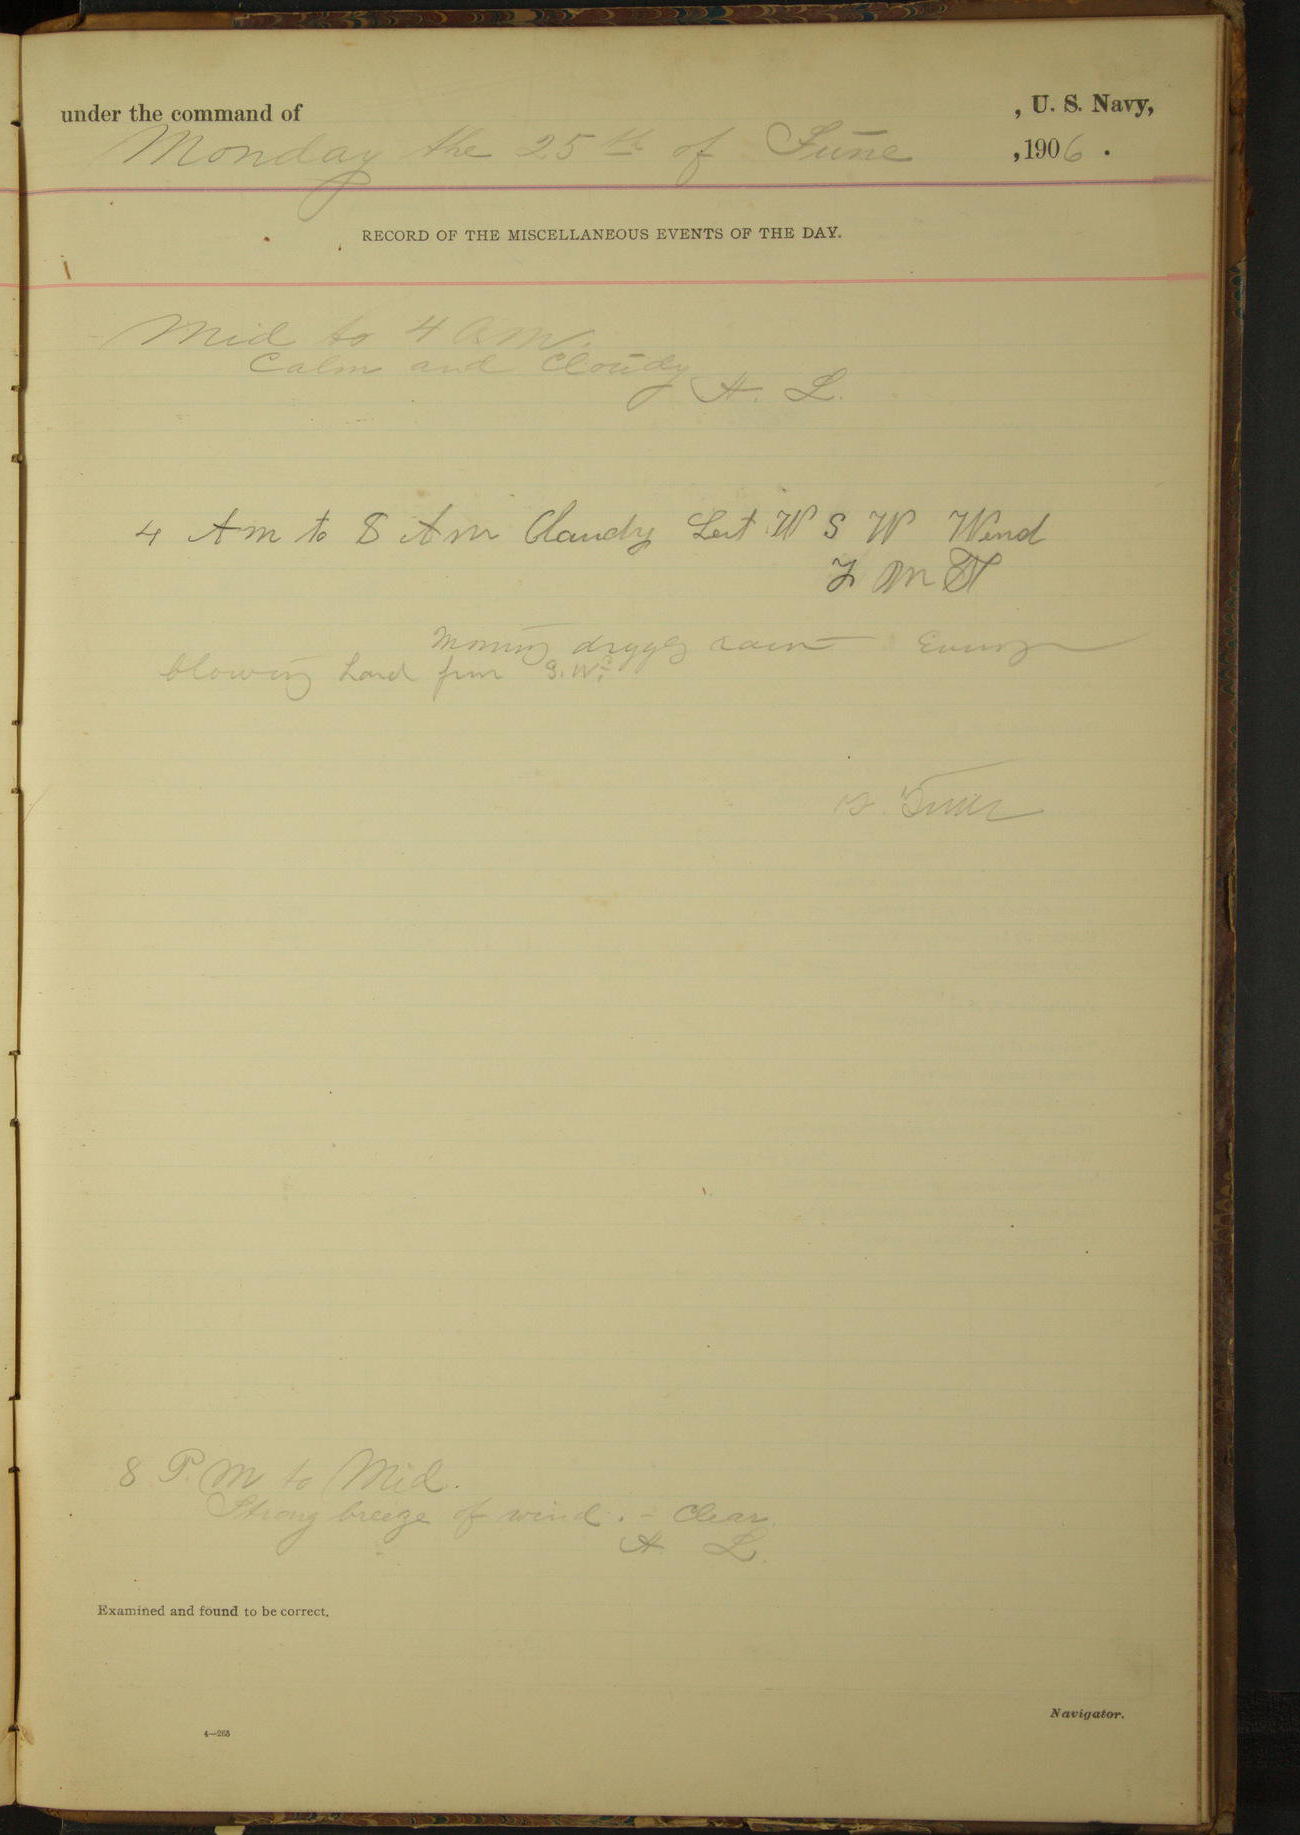 under the command of , U. S. Navy,
Monday the 25th of June ,1906.
RECORD OF THE MISCELLANEOUS EVENTS OF THE DAY.
Mid to 4 am.
Calm and Cloudy
H. L.
4 Am to 8 Am Cloudy W S W Wind
rain Evening
blowing hard from S.W.
8 P.M to Mid.
Strong breeze of wind. - Clear.
H L.
Examined and found to be correct.
Navigator.
4—265